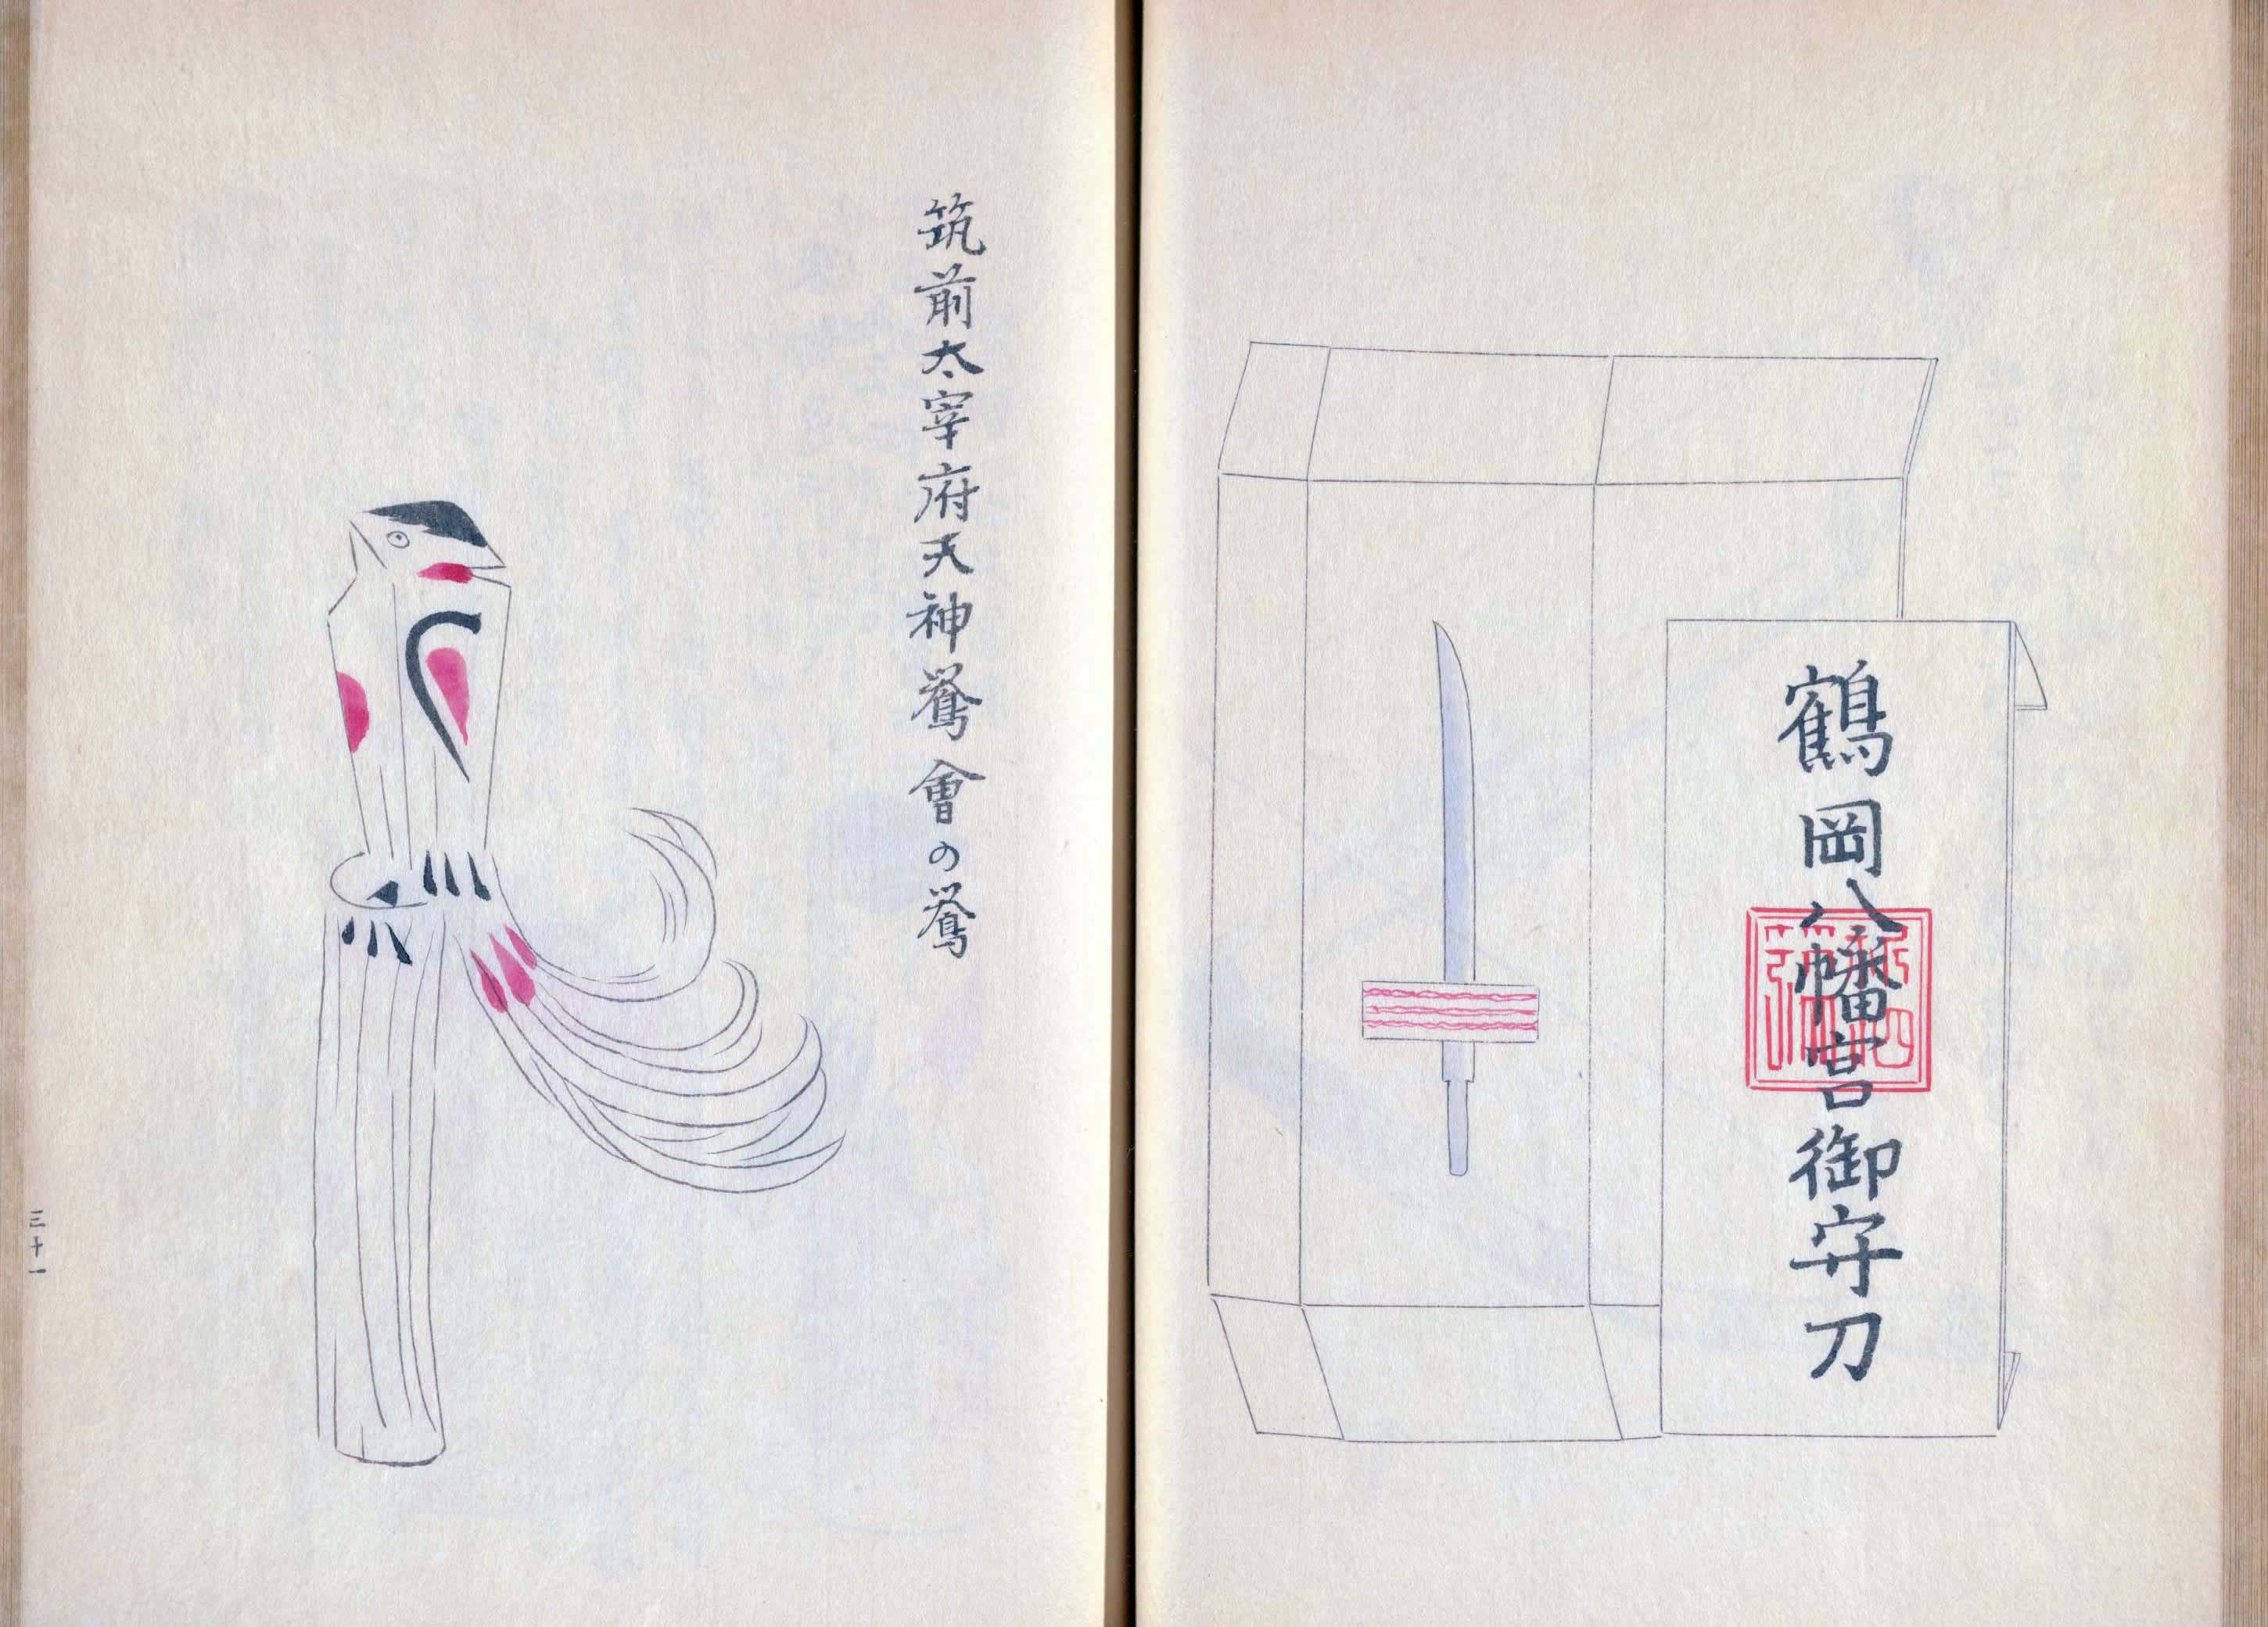 鶴岡八幡宮御守刀
筑前太宰府天神鷽會の鷽
三十一